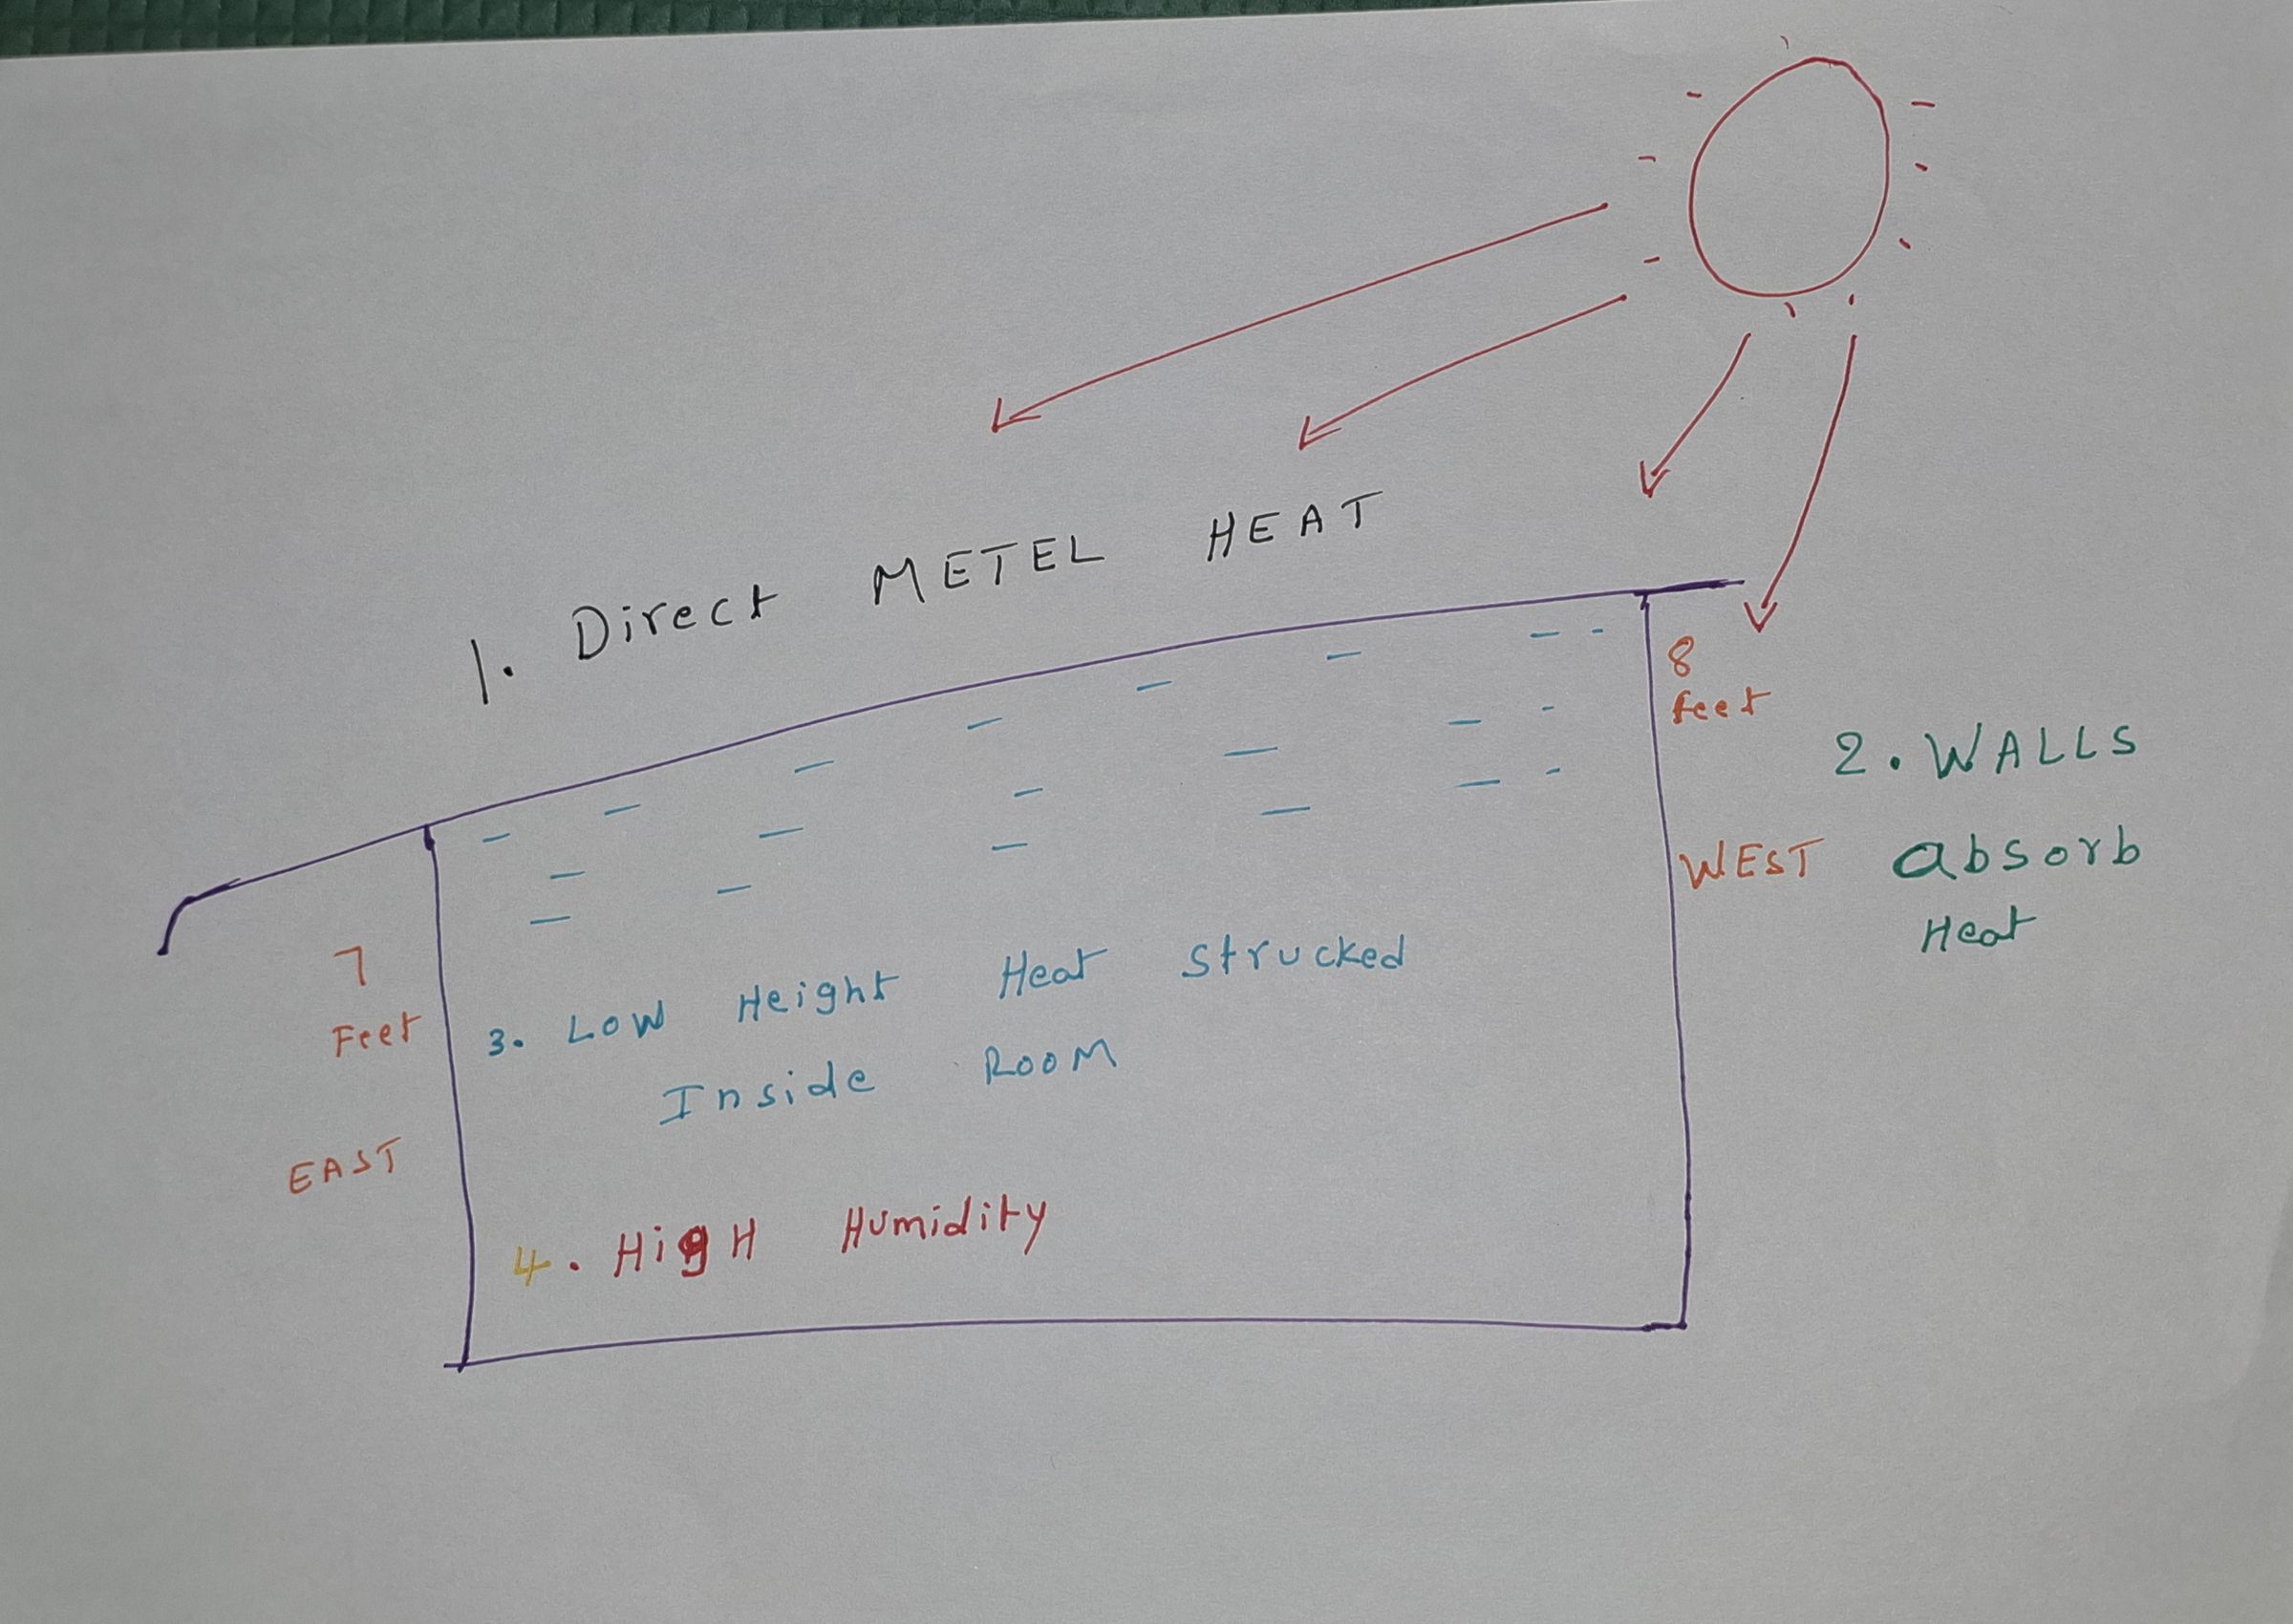 1. Direct METEL HEAT
8
feet
2. WALLS
WEST absorb
Heat
7
Feet
3. LOW Height Heat Strucked
Inside ROOM
EAST
4. HigH Humidity